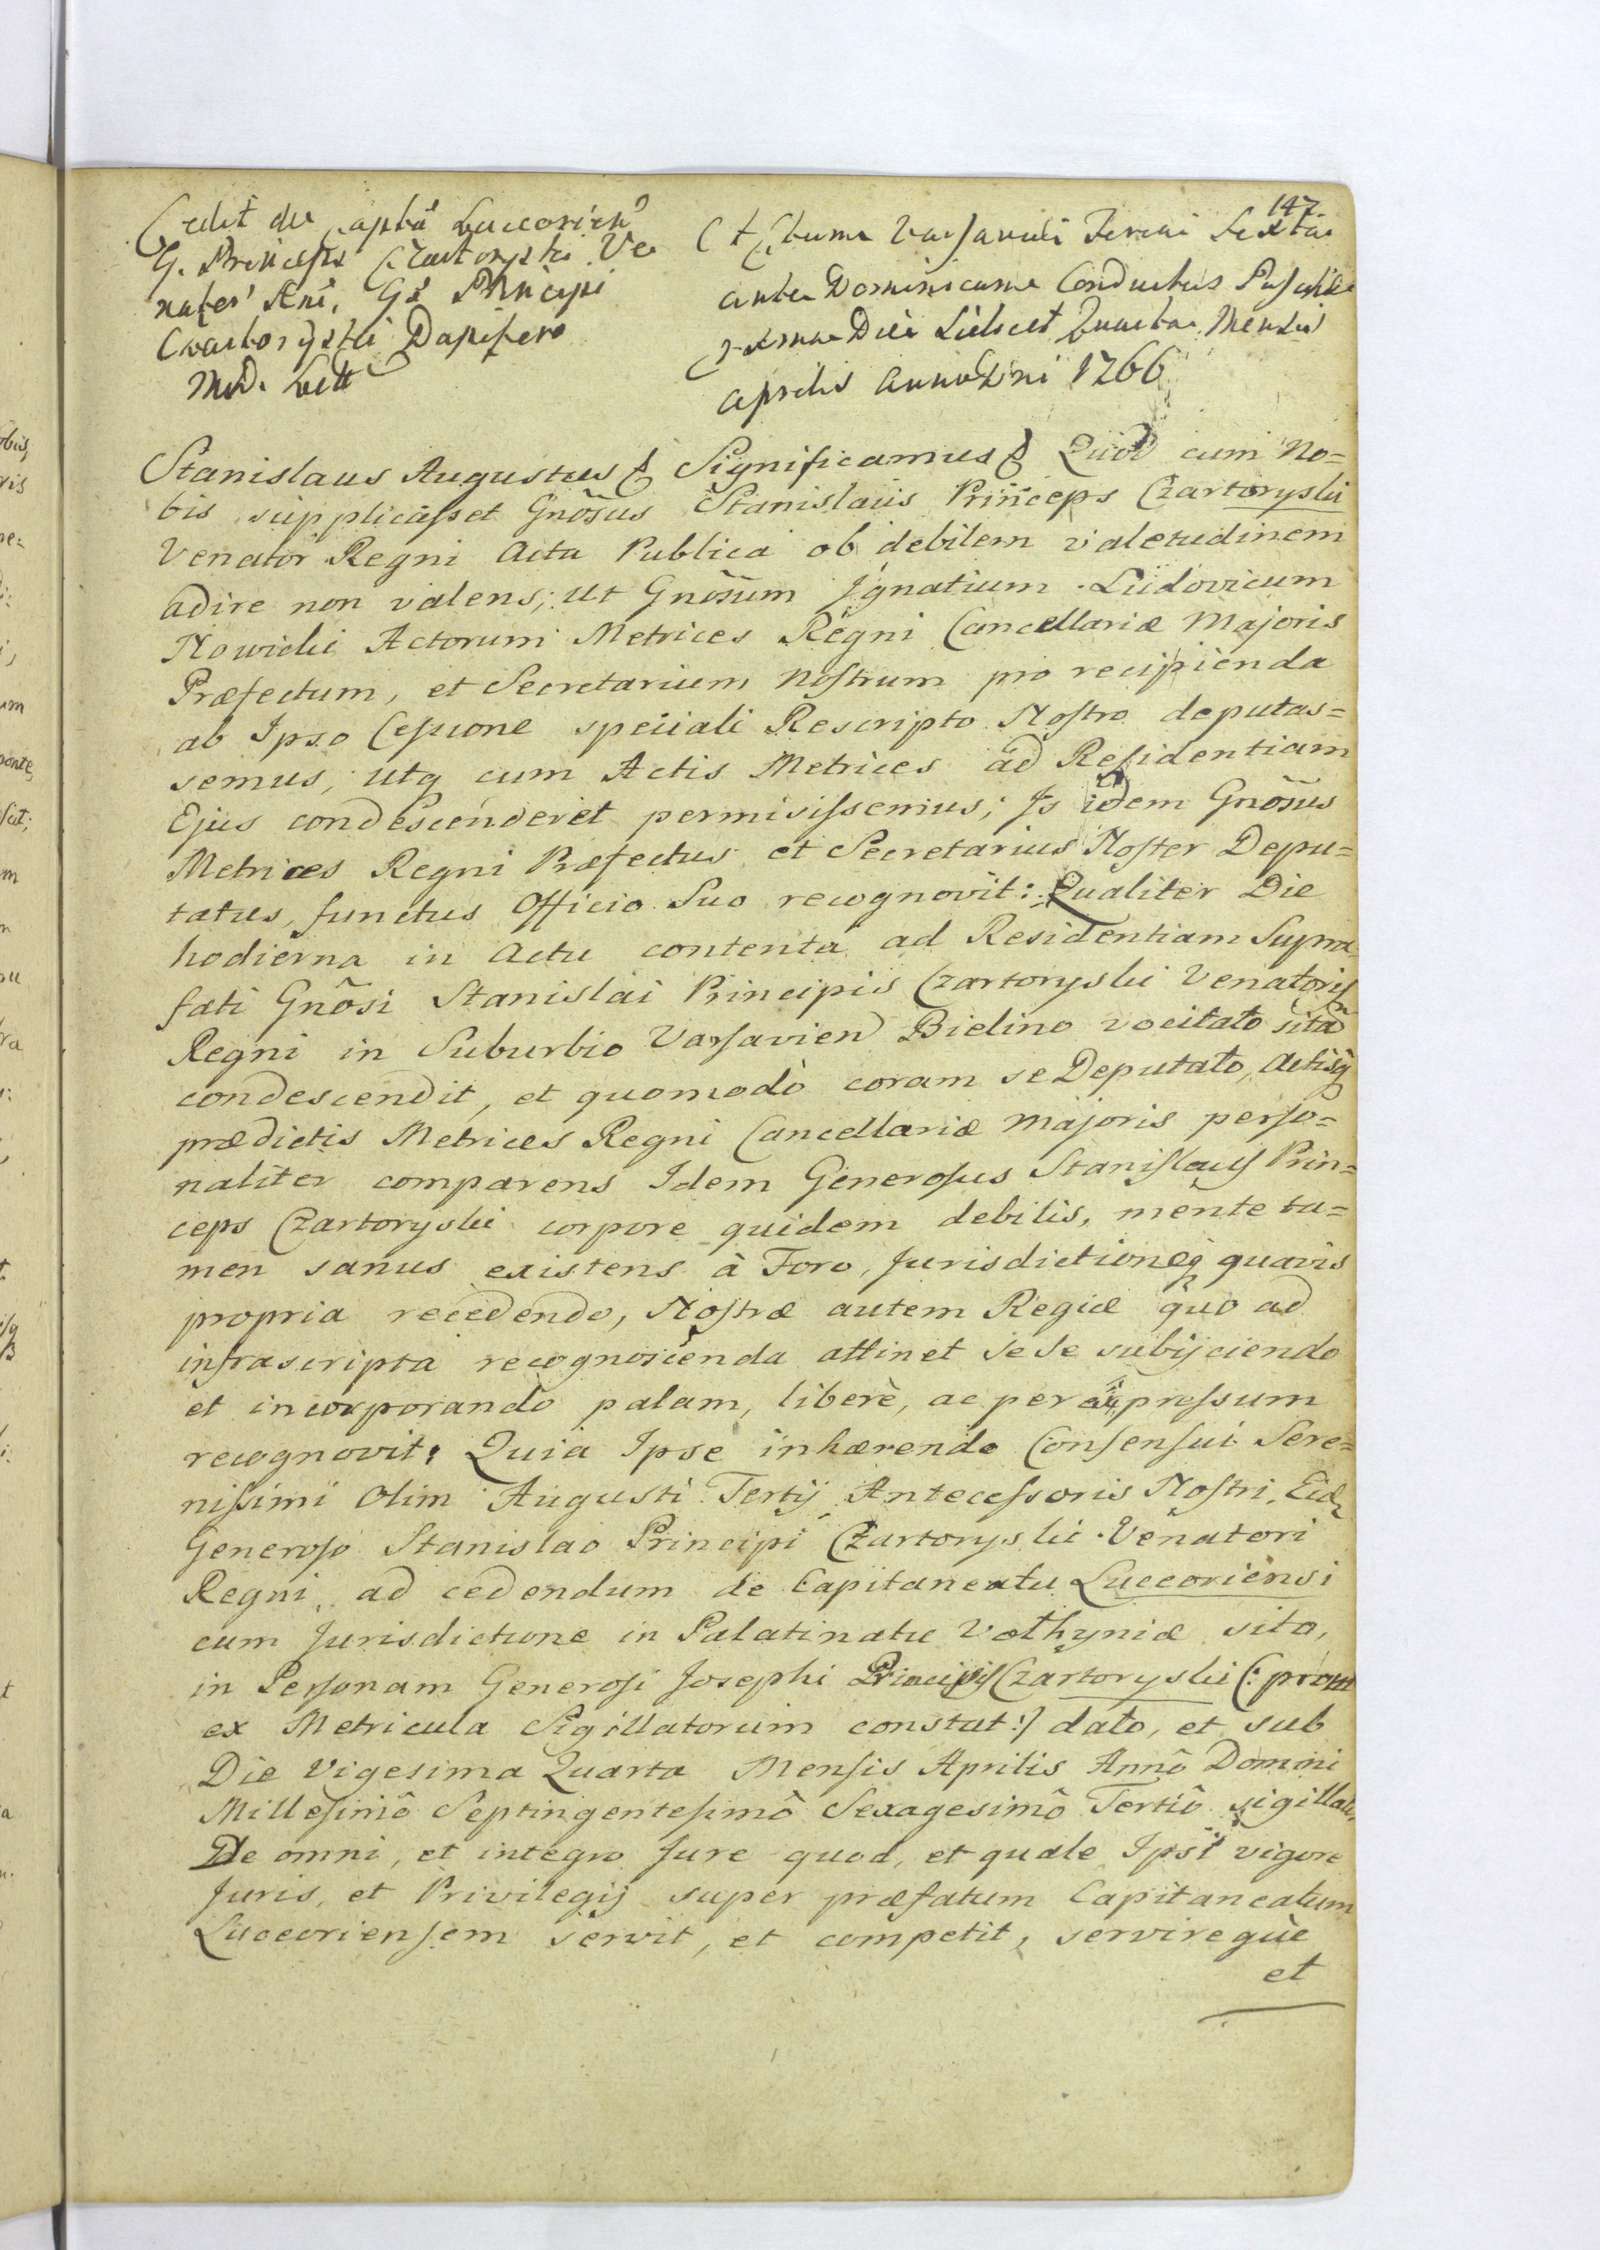 147
Cedit de captu Luccorien
G. Princeps Czartoryski Ve
nator Rni, Gs Principi
Czartoryski Dapifero
M.D. Litt
Actum Varsaviæ Feria Sexta
ante Dominicam Conductus Paschæ
Die Scilicet Quarta Mensis
Aprilis Anno Dni 1766
Stanislaus Augustus & Significamus & Quod cum No=
bis supplicasset Gnõsus Stanislaus Princeps Czartoryski
Venator Regni Acta Publica ob debilem valetudinem
adire non valens; Ut Gnõsum Ignatium Ludovicum
Nowicki Actorum Metrices Regni Cancellariæ Majoris
Præfectum, et Secretarium Nostrum pro recipienda
ab Ipso Cessione speciali Rescripto Nostro deputas=
semus, utq cum Actis Metrices ad Residentiam
Ejus condescenderet permisissemus; Is idem Gnõsus
Metrices Regni Præfectus et Secretarius Noster Depu=
tatus, functus Officio Suo recognovit: Qualiter Die
hodierna in Actu contenta ad Residentiam Supra
fati Gnõsi Stanislai Principis Czartoryski Venatoris
Regni in Suburbio Varsavien Bielino vocitato sitã
condescendit, et quomodò coram se Deputato, Actisq
prædictis Metrices Regni Cancellariæ Majoris perso=
naliter comparens Idem Generosus Stanislaus Prin=
ceps Czartoryski corpore quidem debilis, mente ta=
men sanus existens à Foro, Jurisdictioneq quavis
propria recedendo, Nostræ autem Regiæ quo ad
infrascripta recognoscenda attinet sese subijciendo
et incorporando palam, liberè, ac per expressum
recognovit: Quia Ipse inhærendo Consensui Sere=
nissimi Olim Augusti Tertij Antecessoris Nostri, Eid
Generoso Stanislao Principi Czartoryski Venatori
Regni, ad cedendum de Capitaneatu Lucceoriensi
cum Jurisdictione in Palatinatu Volhyniæ sito,
in Personam Generosi Josephi Principis Czartoryski (: prout
ex Metricula Sigillatorum constat :) dato, et sub
Die Vigesima Quarta Mensis Aprilis Annô Domini
Millesimô Septingentesimô Sexagesimô Tertiô sigillato,
De omni, et integro Jure quod, et quale Ipsi vigore
Juris, et Privilegij super præfatum Capitaneatum
Lucceoriensem servit, et competit, servireque
et